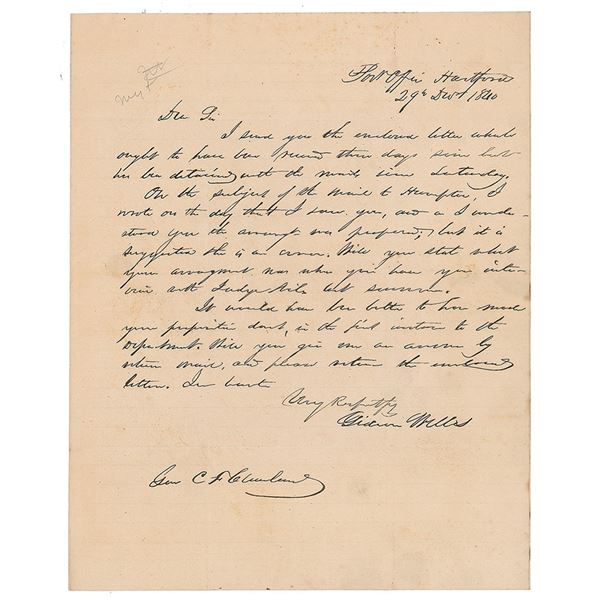 Post Office Hartford
29th Decr 1840
Dear Sir
I send you the enclosed letter which
ought to have been received three days since but
has been detained with the mails since Saturday.
On the subject of the mail to Hampton, I
wrote on the day that I saw you, and as I under-
stood you the arrangt was prepared; but it is
suggested this is an error. Will you state what
your arrangement was when you have your inter-
view with Judge last summer.
It would have been better to have made
your proposition direct, in the first instance to the
Department. Will you give me an answer by
return mail, and please return the enclosed
letter. In haste
Very Respectfly
Gideon Welles
Gen C F Cleveland